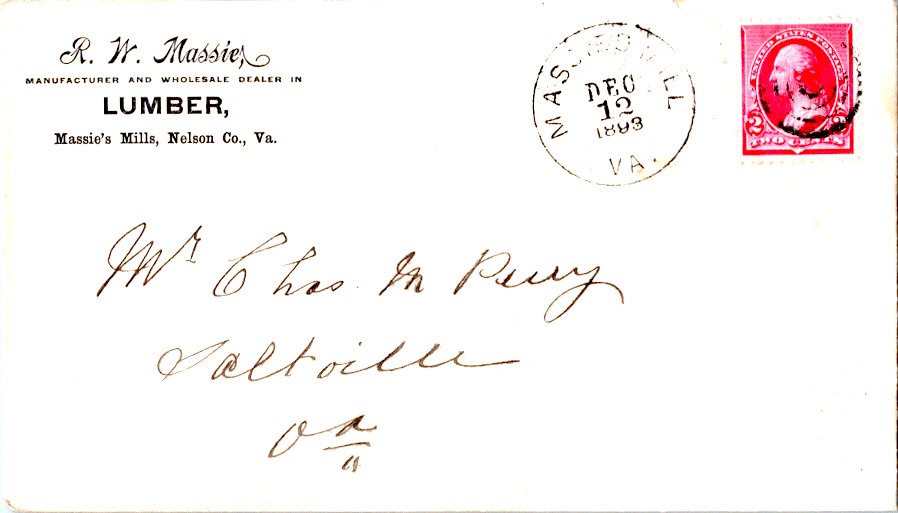 R. W. Massie,
MANUFACTURER AND WHOLESALE DEALER IN
LUMBER,
Massie's Mills, Nelson Co., Va.
MASSIES MILL
DEC
12
1893
VA.
UNITED STATES POSTAGE
2 2
TWO CENTS
Mr Chas. M Perry
Saltville
Va